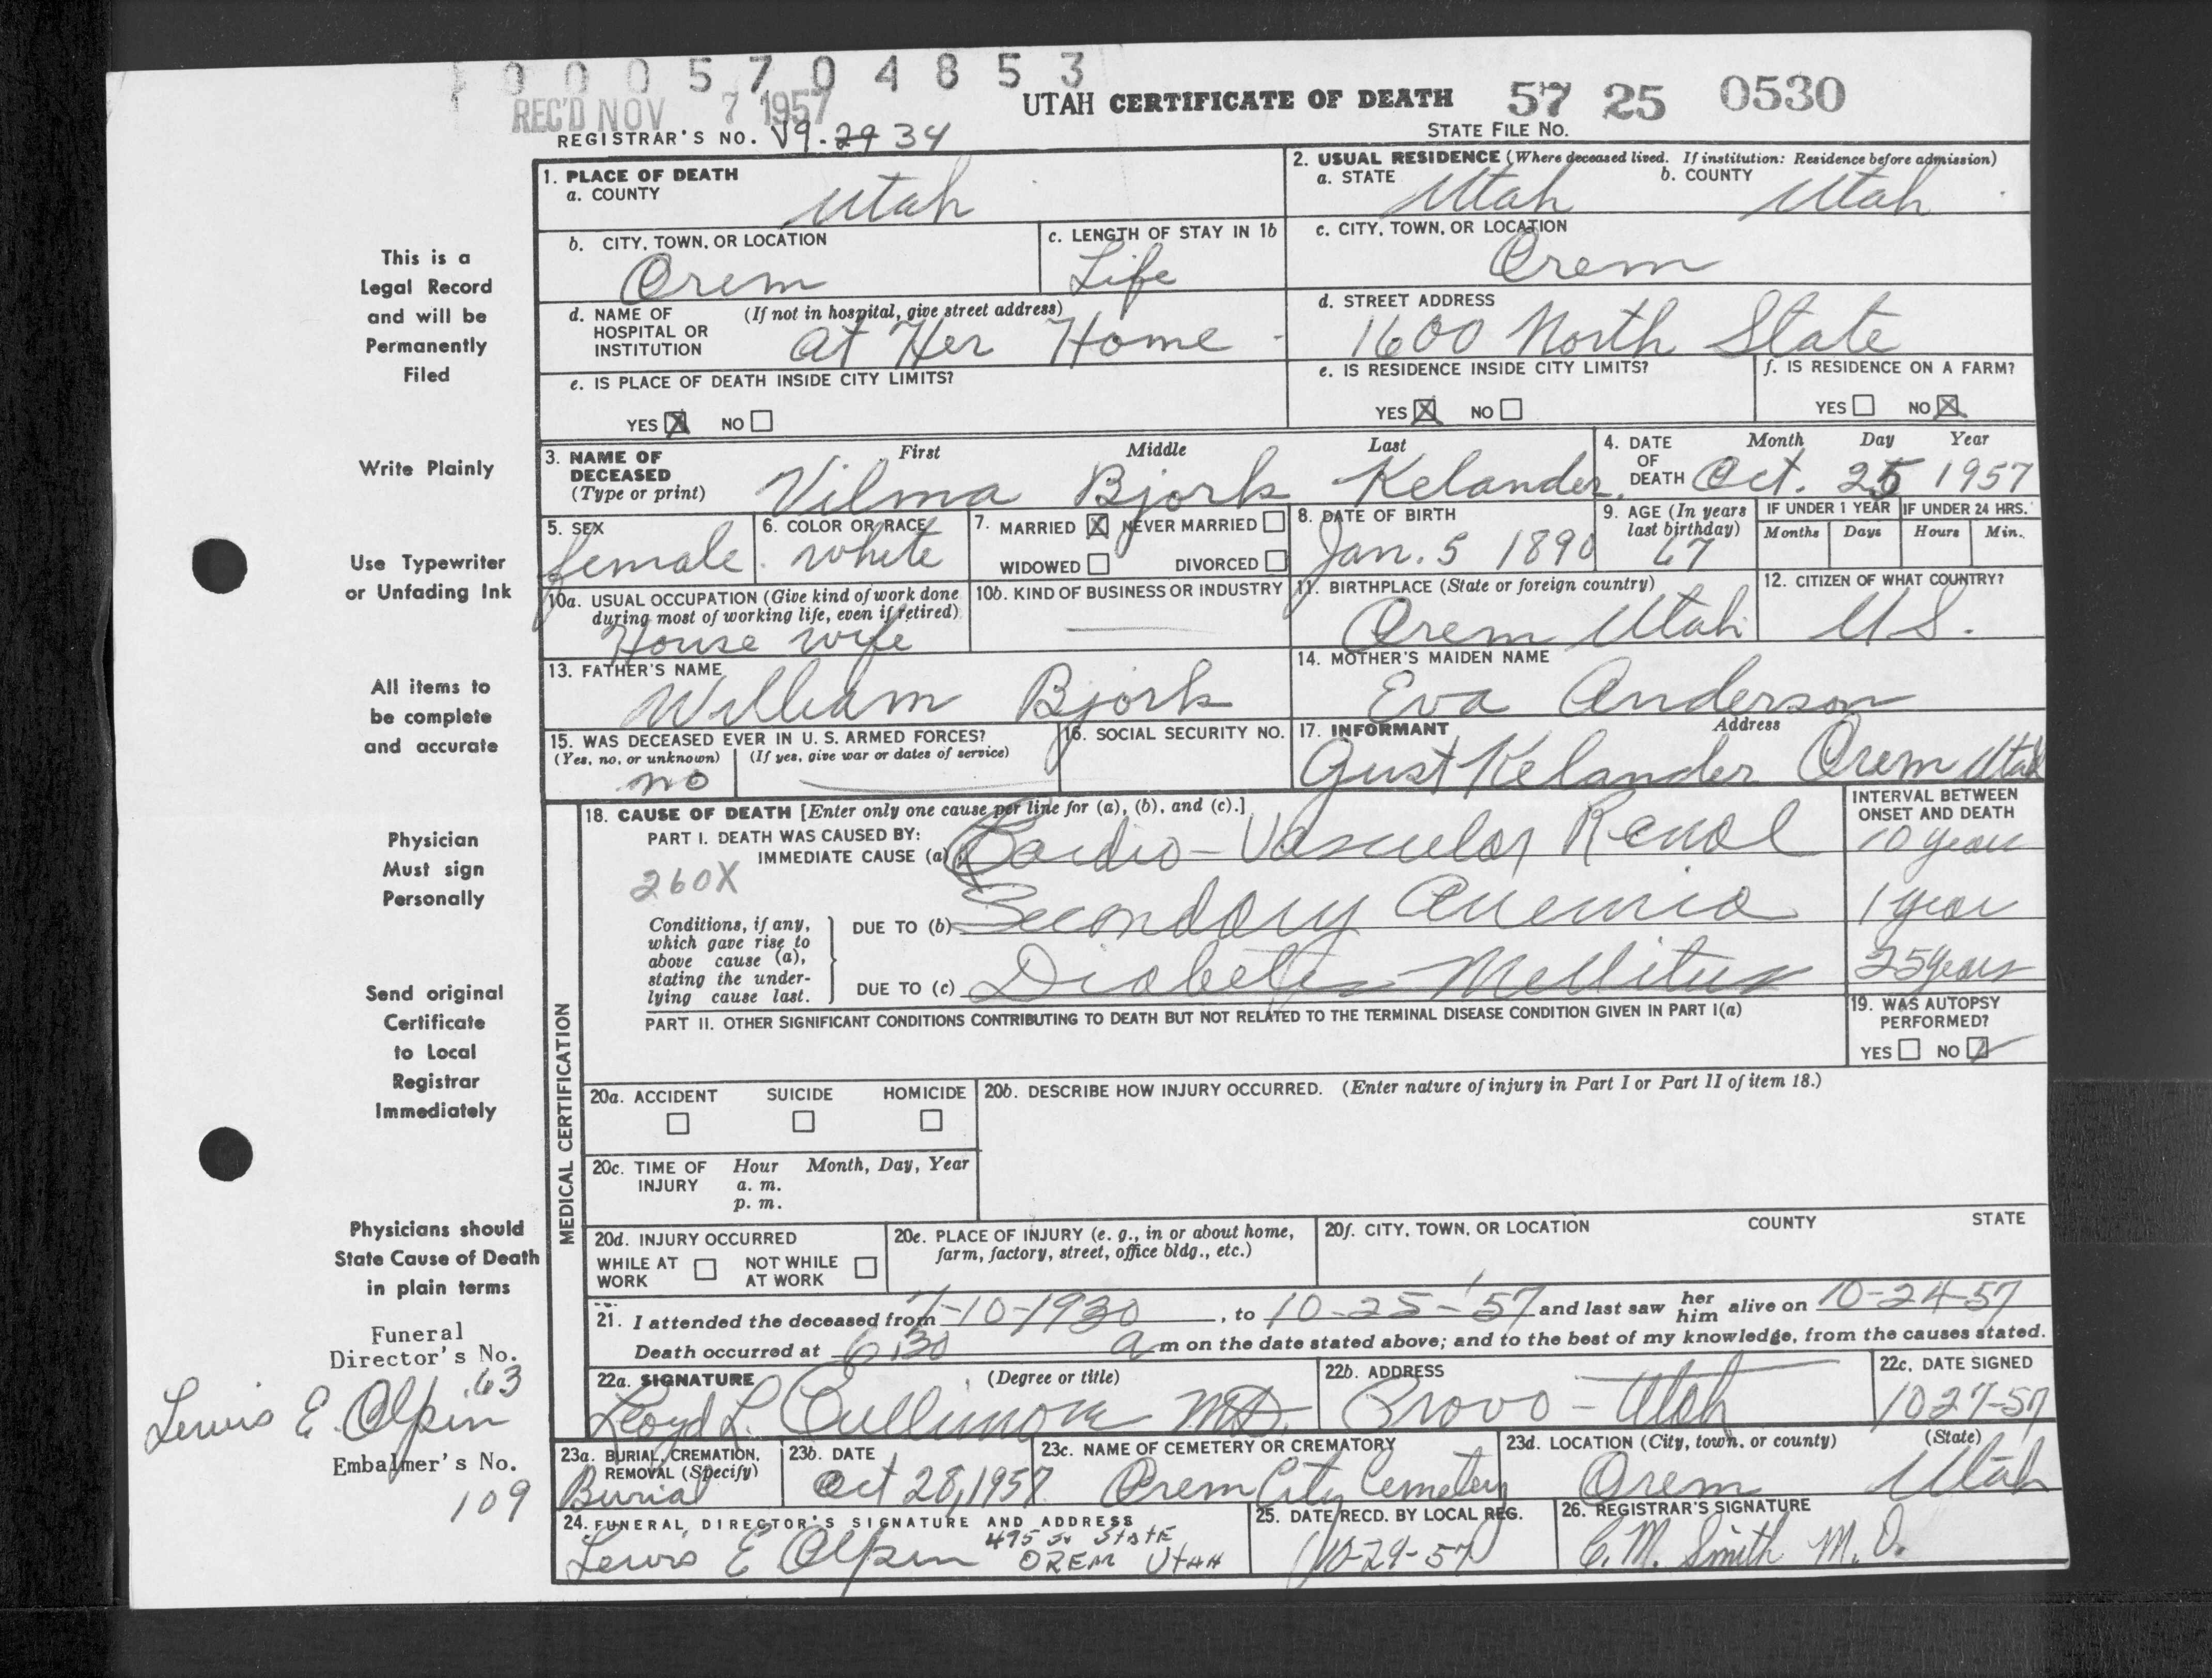 0 0 0 5 7 0 4 8 5 3
REC'D NOV 7 1957
UTAH CERTIFICATE OF DEATH 57 25 0530
REGISTRAR'S NO. V9-29 34
STATE FILE NO.
1. PLACE OF DEATH
a. COUNTY Utah
2. USUAL RESIDENCE (Where deceased lived. If institution: Residence before admission)
a. STATE Utah b. COUNTY Utah
b. CITY, TOWN, OR LOCATION Orem
c. LENGTH OF STAY IN 1b Life
c. CITY, TOWN, OR LOCATION Orem
d. NAME OF HOSPITAL OR INSTITUTION (If not in hospital, give street address) at Her Home
d. STREET ADDRESS 1600 North State
e. IS PLACE OF DEATH INSIDE CITY LIMITS?
YES X NO
e. IS RESIDENCE INSIDE CITY LIMITS?
YES X NO
f. IS RESIDENCE ON A FARM?
YES NO X
3. NAME OF DECEASED (Type or print)
First Middle Last
Vilma Bjork Kelander
4. DATE OF DEATH Month Day Year
Oct. 25 1957
5. SEX female
6. COLOR OR RACE white
7. MARRIED X NEVER MARRIED
WIDOWED DIVORCED
8. DATE OF BIRTH Jan. 5 1890
9. AGE (In years last birthday) 67
IF UNDER 1 YEAR Months Days
IF UNDER 24 HRS. Hours Min.
10a. USUAL OCCUPATION (Give kind of work done during most of working life, even if retired) House wife
10b. KIND OF BUSINESS OR INDUSTRY
11. BIRTHPLACE (State or foreign country) Orem Utah
12. CITIZEN OF WHAT COUNTRY? U S.
13. FATHER'S NAME William Bjork
14. MOTHER'S MAIDEN NAME Eva Anderson
15. WAS DECEASED EVER IN U. S. ARMED FORCES?
(Yes, no, or unknown) (If yes, give war or dates of service)
no
16. SOCIAL SECURITY NO.
17. INFORMANT Address
Gust Kelander Orem Utah
MEDICAL CERTIFICATION
18. CAUSE OF DEATH [Enter only one cause per line for (a), (b), and (c).]
INTERVAL BETWEEN ONSET AND DEATH
PART I. DEATH WAS CAUSED BY:
IMMEDIATE CAUSE (a) Cardio-Vascular Renal 10 years
260X
Conditions, if any, which gave rise to above cause (a), stating the underlying cause last.
DUE TO (b) Secondary Anemia 1 year
DUE TO (c) Diabetes Mellitus 25 years
PART II. OTHER SIGNIFICANT CONDITIONS CONTRIBUTING TO DEATH BUT NOT RELATED TO THE TERMINAL DISEASE CONDITION GIVEN IN PART I(a)
19. WAS AUTOPSY PERFORMED?
YES NO ✓
20a. ACCIDENT SUICIDE HOMICIDE
20b. DESCRIBE HOW INJURY OCCURRED. (Enter nature of injury in Part I or Part II of item 18.)
20c. TIME OF INJURY Hour Month, Day, Year
a. m.
p. m.
20d. INJURY OCCURRED
WHILE AT WORK NOT WHILE AT WORK
20e. PLACE OF INJURY (e. g., in or about home, farm, factory, street, office bldg., etc.)
20f. CITY, TOWN, OR LOCATION COUNTY STATE
21. I attended the deceased from 7-10-1930, to 10-25-'57 and last saw her him alive on 10-24-57
Death occurred at 6:30 a m on the date stated above; and to the best of my knowledge, from the causes stated.
22a. SIGNATURE (Degree or title)
Lloyd L. Cullimore MD.
22b. ADDRESS Provo - Utah
22c. DATE SIGNED 10 27-57
23a. BURIAL, CREMATION, REMOVAL (Specify) Burial
23b. DATE Oct 28, 1957
23c. NAME OF CEMETERY OR CREMATORY Orem City Cemetery
23d. LOCATION (City, town, or county) (State)
Orem Utah
24. FUNERAL DIRECTOR'S SIGNATURE AND ADDRESS
Lewis E Olpin 495 So State
OREM Utah
25. DATE RECD. BY LOCAL REG. 10-29-57
26. REGISTRAR'S SIGNATURE C. M. Smith M. D.
This is a
Legal Record
and will be
Permanently
Filed
Write Plainly
Use Typewriter
or Unfading Ink
All items to
be complete
and accurate
Physician
Must sign
Personally
Send original
Certificate
to Local
Registrar
Immediately
Physicians should
State Cause of Death
in plain terms
Funeral
Director's No.
63
Lewis E. Olpin
Embalmer's No.
109